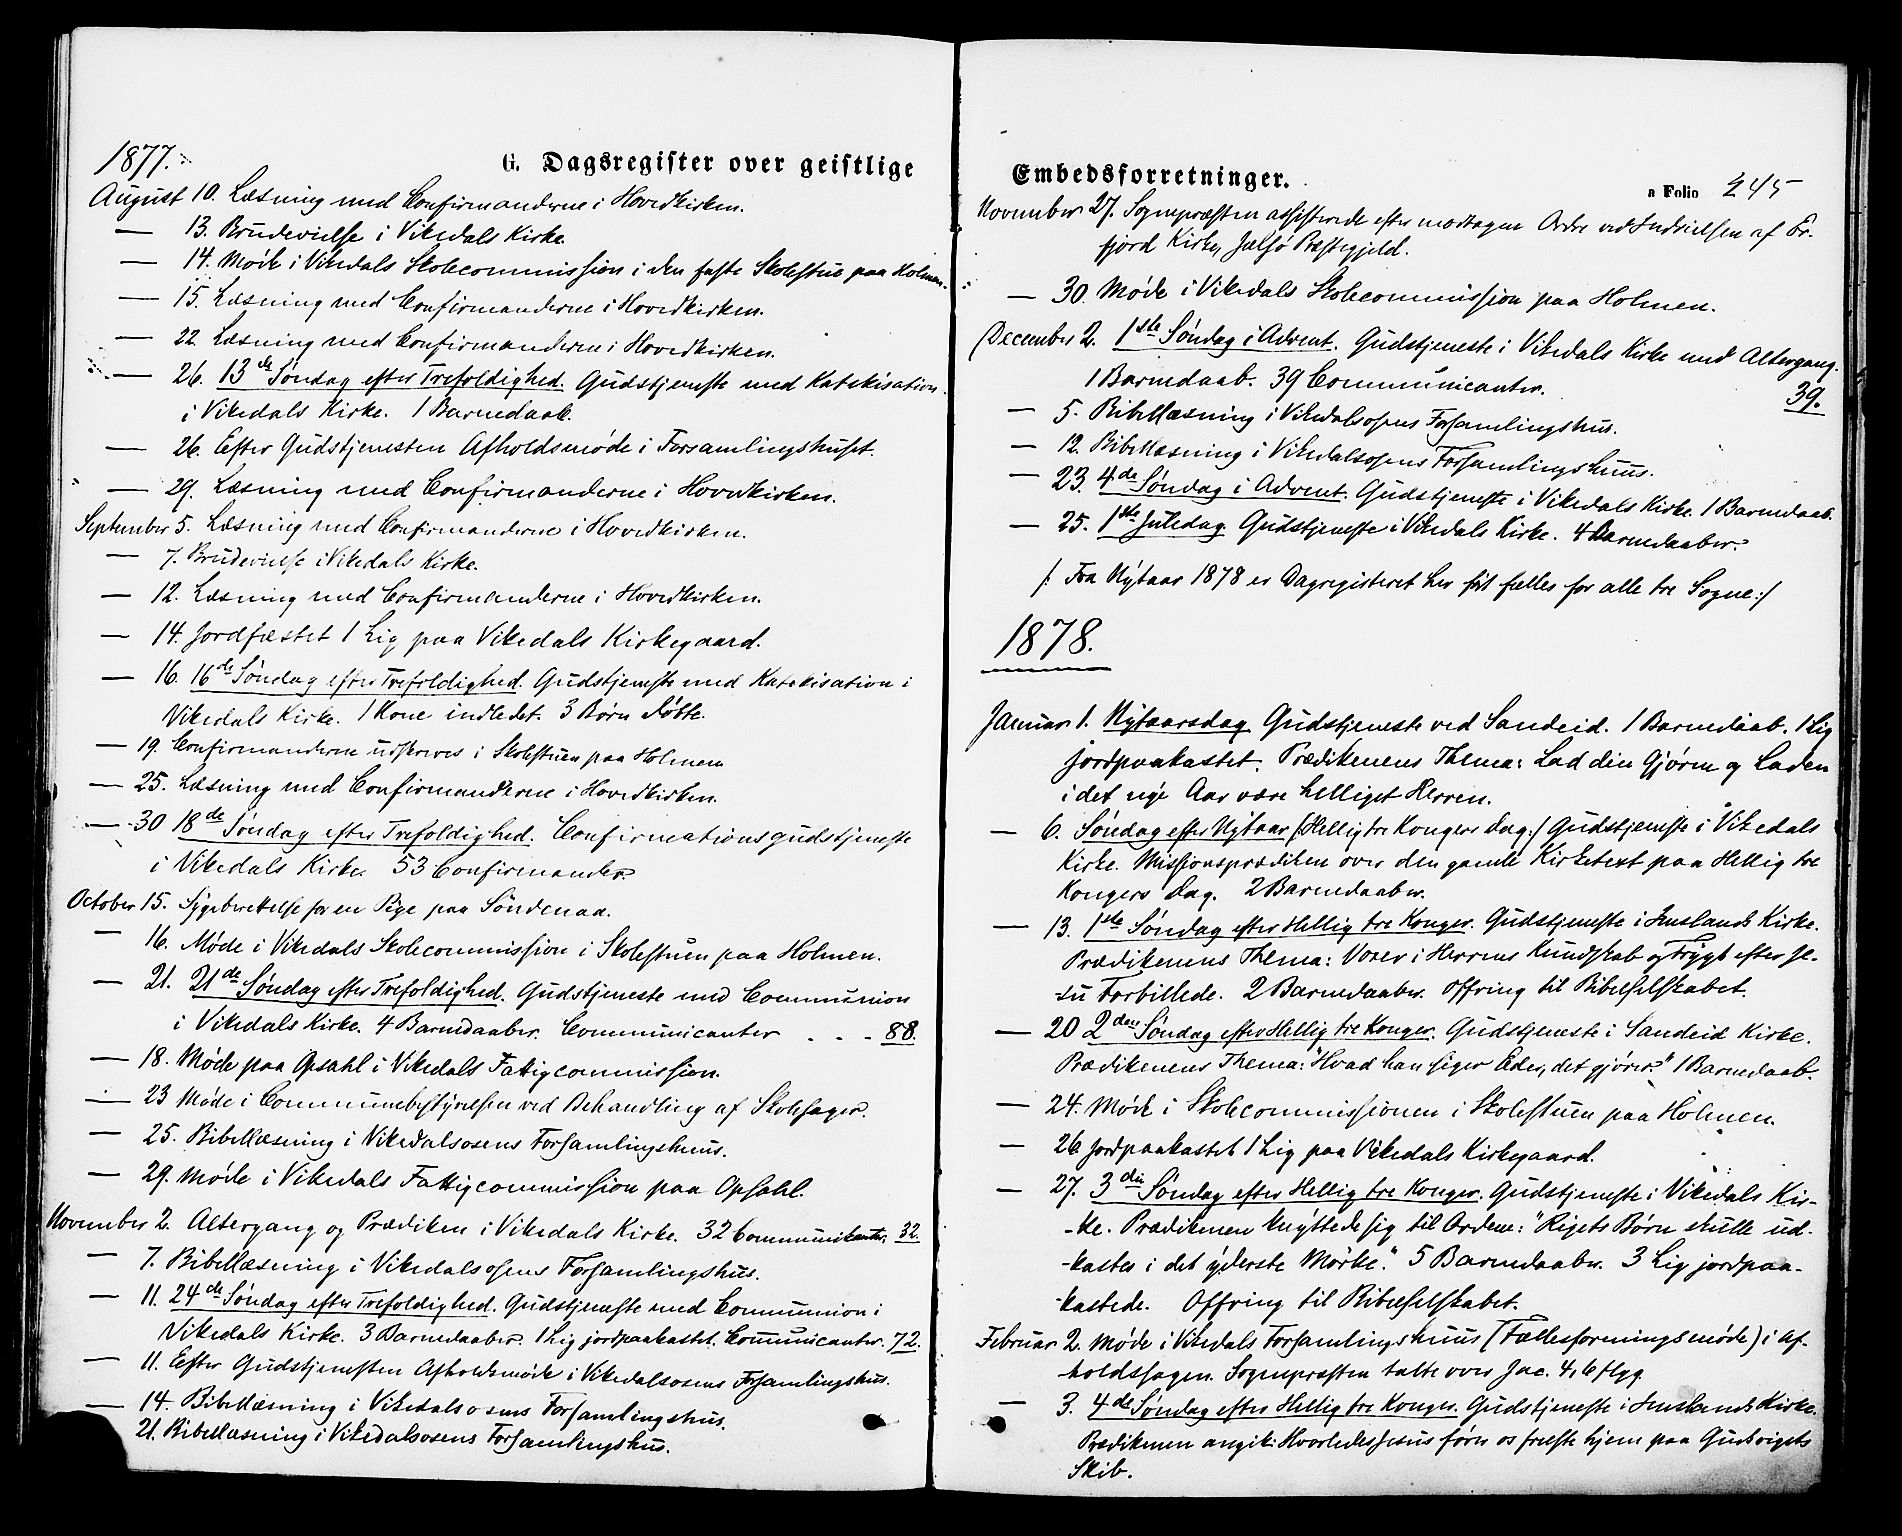 1877.
G. Dagsregister over geistlige
August 10. Læsning med Confirmanderne i Hovedkirken.
— 13. Brudevielse i Vikedals Kirke.
— 14. Møde i Vikedals Skolecommission i den faste Skolestue paa Holmen.
— 15. Læsning med Confirmanderne i Hovedkirken.
— 22. Læsning med Confirmanderne i Hovedkirken.
— 26. 13de Søndag efter Trefoldighed. Gudstjeneste med Katekisation
i Vikedals Kirke. 1 Barnedaab.
— 26. Efter Gudstjenesten Afholdsmøde i Forsamlingshuset.
— 29. Læsning med Confirmanderne i Hovedkirken.
September 5. Læsning med Confirmanderne i Hovedkirken.
— 7. Brudevielse i Vikedals Kirke.
— 12. Læsning med Confirmanderne i Hovedkirken.
— 14. Jordfæstet 1 Lig paa Vikedals Kirkegaard.
— 16. 16de Søndag efter Trefoldighed. Gudstjeneste med Katekisation i
Vikedals Kirke. 1 Kone indledet. 3 Børn døbte.
— 19. Confirmanderne udskreves i Skolestuen paa Holmen
— 25. Læsning med Confirmanderne i Hovedkirken.
— 30 18de Søndag efter Trefoldighed. Confirmationsgudstjeneste
i Vikedals Kirke. 53 Confirmander.
October 15. Sygeberettelse for en Pige paa Søndenaa.
— 16. Møde i Vikedals Skolecommission i Skolestuen paa Holmen.
— 21. 21de Søndag efter Trefoldighed. Gudstjeneste med Communion
i Vikedals Kirke. 4 Barnedaaber. Communicanter . . - 88.
— 18. Møde paa Opsahl i Vikedals Fattigcommission.
— 23 Møde i Communebestyrelsen ved Behandling af Skolesager.
— 25. Bibellæsning i Vikedalsosens Forsamlingshuus.
— 29. Møde i Vikedals Fattigcommission paa Opsahl.
November 2. Altergang og Prædiken i Vikedals Kirke. 32 Communikanter. 32.
— 7. Bibellæsning i Vikedalsosens Forsamlingshus.
— 11. 24de Søndag efter Trefoldighed. Gudstjeneste med Communion i
Vikedals Kirke. 3 Barnedaaber. 1 Lig jordpaakastet. Communicanter. 72.
— 11. Efter Gudstjenesten Afholdsmøde i Vikedalsosens Forsamlingshus.
— 14. Bibellæsning i Vikedalsosens Forsamlingshus.
21. Bibellæsning i Vikedalsosens Forsamlingshus.
Embedsforretninger.
a Folio 245
November 27. Sognepræsten assisterede efter modtagen Ordre ved Indvielsen af Er-
fjord Kirke, Jælsø Præstegjeld.
— 30. Møde i Vikedals Skolecommission paa Holmen.
December 2. 1ste Søndag i Advent. Gudstjeneste i Vikedals Kirke med Altergang.
1 Barnedaab. 39 Communicanter. 39.
— 5. Bibellæsning i Vikedalsosens Forsamlingshus.
— 12. Bibellæsning i Vikedalsosens Forsamlingshuus.
— 23. 4de Søndag i Advent. Gudstjeneste i Vikedals Kirke. 1 Barnedaab.
— 25. 1ste Juledag. Gudstjeneste i Vikedals Kirke. 4 Barnedaaber.
/: Fra Nytaar 1878 er Dagregisteret her ført fælles for alle tre Sogne:/
1878.
Januar 1. Nytaarsdag Gudstjeneste ved Sandeid. 1 Barnedaab. 1 Lig
jordpaakastet. Prædikenens Thema: Lad din Gjøren og Laden
i det nye Aar være helliget Herren.
— 6. Søndag efter Nytaar (Hellig tre Kongers Dag:/ Gudstjeneste i Vikedals
Kirke. Missionsprædiken over den gamle Kirketext paa Hellig tre
Kongers Dag. 2 Barnedaaber.
— 13. 1ste Søndag efter Hellig tre Konger. Gudstjeneste i Imslands Kirke.
Prædikenens Thema: Voxer i Herrens Kundskab og Frygt efter Je-
su Forbillede. 2 Barnedaaber. Offring til Bibelselskabet.
— 20 2den Søndag efter Hellig tre Konger. Gudstjeneste i Sandeid Kirke.
Prædikenens Thema: "Hvad han siger Eder, det gjører." 1 Barnedaab.
— 24. Møde i Skolecommissionen i Skolestuen paa Holmen.
— 26. Jordpaakastet 1 Lig paa Vikedals Kirkegaard.
— 27. 3die Søndag efter Hellig tre Konger. Gudstjeneste i Vikedals Kir-
-ke. Prædikenen knyttede sig til Ordene: "Rigets Børn skulle ud-
-kastes i det yderste Mørke". 5 Barnedaaber. 3 Lig jordpaa-
-kastede. Offring til Bibelselskabet.
Februar 2. Møde i Vikedals Forsamlingshuus (Fællesforeningsmøde) i Af-
holdssagen. Sognepræsten talte over Jac. 4, 6 flgg.
— 3. 4de Søndag efter Hellig tre Konger. Gudstjeneste i Imslands Kirke.
Prædikenen angik: Hvorledes Jesus fører os frelste hjem paa Gudsrigets
Skib.